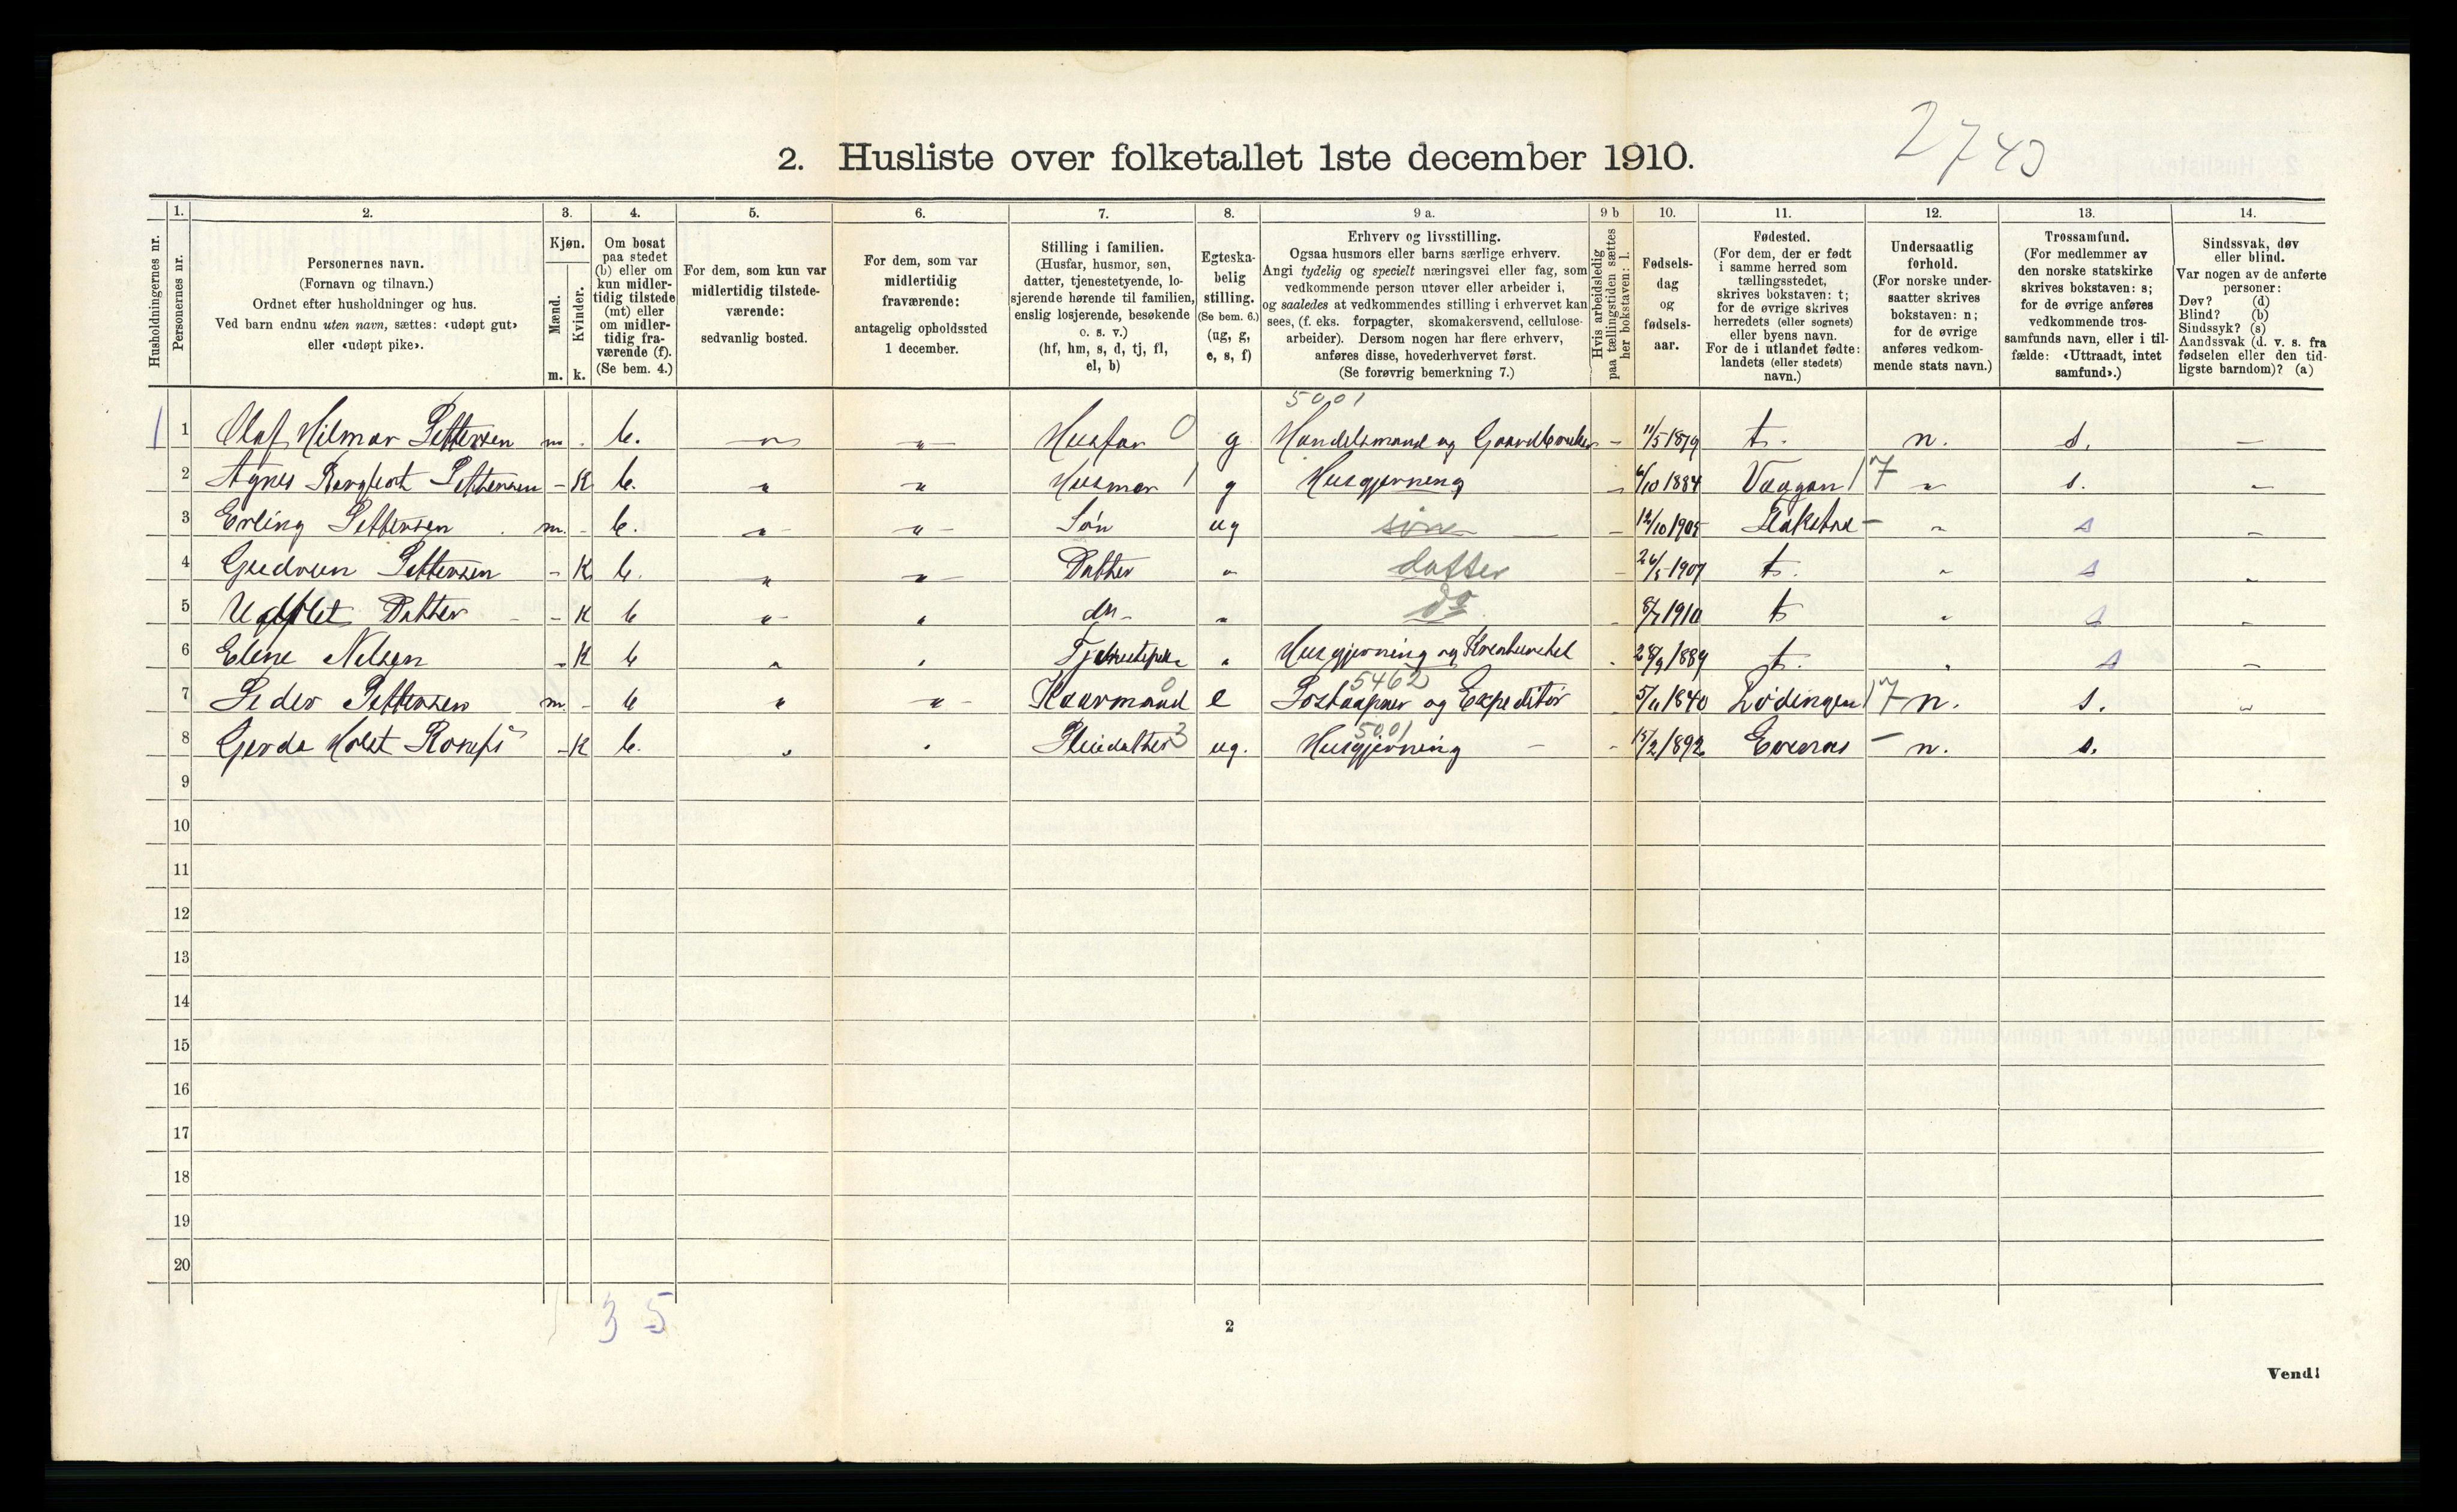 2740
2. Husliste over folketallet 1ste december 1910.
Husholdningernes nr.
1. Personernes nr.
2. Personernes navn.
(Fornavn og tilnavn.)
Ordnet efter husholdninger og hus.
Ved barn endnu uten navn, sættes: «udøpt gut»
eller «udøpt pike».
3. Kjøn.
Mænd. m.
Kvinder. k.
4. Om bosat
paa stedet
(b) eller om
kun midler-
tidig tilstede
(mt) eller
om midler-
tidig fra-
værende (f).
(Se bem. 4.)
5. For dem, som kun var
midlertidig tilstede-
værende:
sedvanlig bosted.
6. For dem, som var
midlertidig
fraværende:
antagelig opholdssted
1 december.
7. Stilling i familien.
(Husfar, husmor, søn,
datter, tjenestetyende, lo-
sjerende hørende til familien,
enslig losjerende, besøkende
o. s. v.)
(hf, hm, s, d, tj, fl,
el, b)
8. Egteska-
belig
stilling.
(Se bem. 6.)
(ug, g,
e, s, f)
9 a. Erhverv og livsstilling.
Ogsaa husmors eller barns særlige erhverv.
Angi tydelig og specielt næringsvei eller fag, som
vedkommende person utøver eller arbeider i,
og saaledes at vedkommendes stilling i erhvervet kan
sees, (f. eks. forpagter, skomakersvend, cellulose-
arbeider). Dersom nogen har flere erhverv,
anføres disse, hovederhvervet først.
(Se forøvrig bemerkning 7.)
9 b Hvis arbeidsledig
paa tællingstiden sættes
her bokstaven: l.
10. Fødsels-
dag
og
fødsels-
aar.
11. Fødested.
(For dem, der er født
i samme herred som
tællingsstedet,
skrives bokstaven: t;
for de øvrige skrives
herredets (eller sognets)
eller byens navn.
For de i utlandet fødte:
landets (eller stedets)
navn.)
12. Undersaatlig
forhold.
(For norske under-
saatter skrives
bokstaven: n;
for de øvrige
anføres vedkom-
mende stats navn.)
13. Trossamfund.
(For medlemmer av
den norske statskirke
skrives bokstaven: s;
for de øvrige anføres
vedkommende tros-
samfunds navn, eller i til-
fælde: «Uttraadt, intet
samfund».)
14. Sindssvak, døv
eller blind.
Var nogen av de anførte
personer:
Døv? (d)
Blind? (b)
Sindssyk? (s)
Aandssvak (d. v. s. fra
fødselen eller den tid-
ligste barndom)? (a)
5001
1 1 Olaf Hilmar Pettersen m. - b. " " Husfar 0 g Handelsmand og Gaardbruker - 11/5 1879 t. n. s. -
2 Agnes Bergljot Pettersen - K b. " " Husmor 1 g Husgjerning - 6/10 1884 Vaagan 17 " s. "
3 Erling Pettersen m. - b. " " Søn ug søn - 12/10 1905 Flakstad - " s "
4 Gudrun Pettersen - K b. " " Datter " datter - 26/5 1907 t. " s "
5 Udøbt Datter - K b " " do - " do - 8/7 1910 t " s "
6 Elene Nelsen - K b " " Tjenestepike " Husgjerning og Kreaturstel - 28/9 1889 t. " s "
5462
7 Peder Pettersen m. - b " " Kaarmand 0 e Postaapner og Expeditør 5/11 1840 Lødingen 17 n. s. "
5001
8 Gerda Holst - K b. " " Pleiedatter 3 ug. Husgjerning - - 15/2 1892 Evenes - n. s.
9
10
11
12
13
14
15
16
17
18
19
20
3 5
2
Vend!